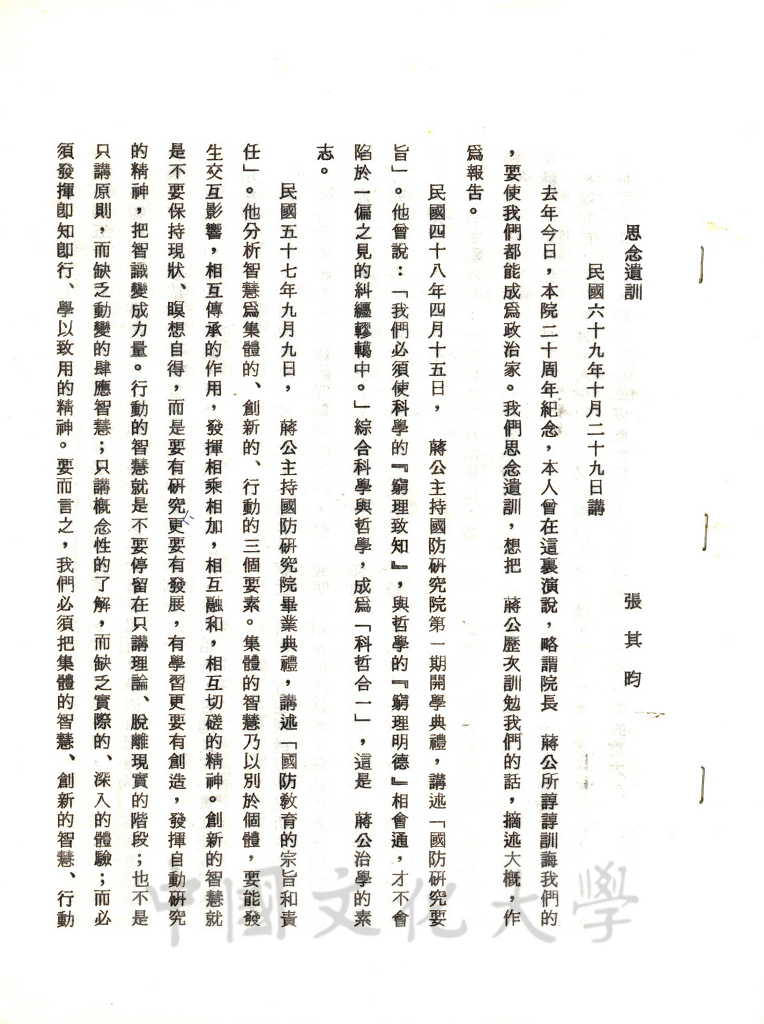 思念遺訓
張其昀
民國六十九年十月二十九日講
去年今日，本院二十周年紀念，本人曾在這裏演說，略謂院長　蔣公所諄諄訓誨我們的
，要使我們都能成爲政治家。我們思念遺訓，想把　蔣公歷次訓勉我們的話，摘述大概，作
爲報告。
民國四十八年四月十五日，　蔣公主持國防研究院第一期開學典禮，講述「國防研究要
旨」。他曾說：「我們必須使科學的『窮理致知』，與哲學的『窮理明德』相會通，才不會
陷於一偏之見的糾纏轇轕中。」綜合科學與哲學，成爲「科哲合一」，這是　蔣公治學的素
志。
民國五十七年九月九日，　蔣公主持國防研究院畢業典禮，講述「國防敎育的宗旨和責
任」。他分析智慧爲集體的、創新的、行動的三個要素。集體的智慧乃以別於個體，要能發
生交互影響，相互傳承的作用，發揮相乘相加，相互融和，相互切磋的精神。創新的智慧就
是不要保持現狀、瞑想自得，而是要有研究更要有發展，有學習更要有創造，發揮自動研究
的精神，把智識變成力量。行動的智慧就是不要停留在只講理論、脫離現實的階段；也不是
只講原則，而缺乏動變的肆應智慧；只講概念性的了解，而缺乏實際的、深入的體驗；而必
須發揮卽知卽行、學以致用的精神。要而言之，我們必須把集體的智慧、創新的智慧、行動
中國文化大學